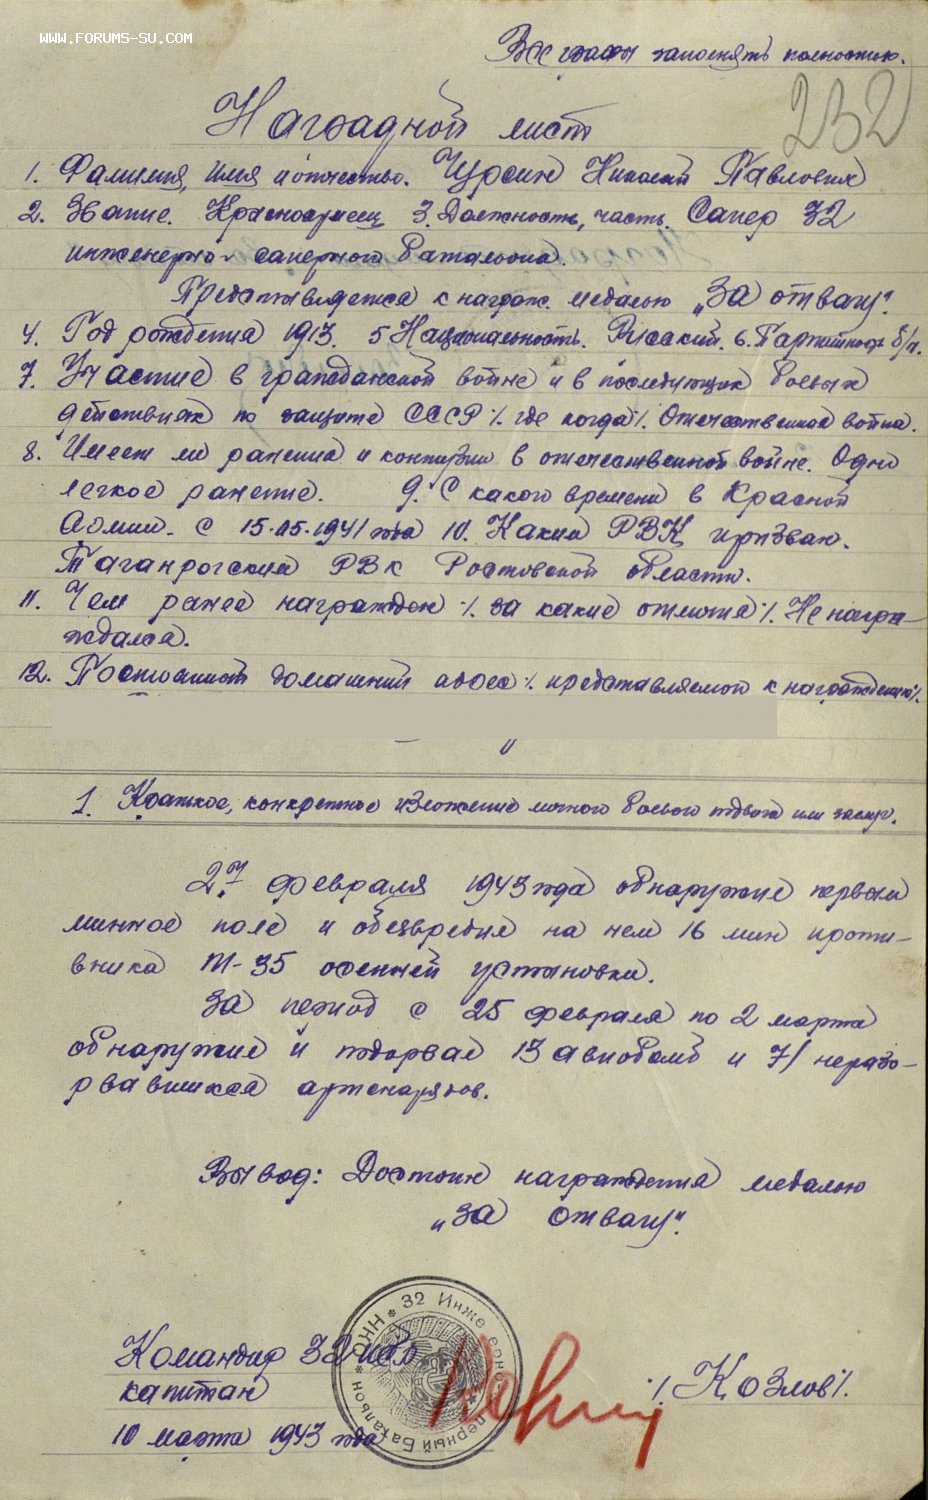 WWW.FORUMS-SU.COM
Все графы заполнять полностью.
232
Наградной лист
1. Фамилия, имя и отчество. Чурсин Николай Павлович
2. Звание. Красноармеец 3. Должность, часть. Сапер 32
инженерно-саперного батальона.
Представляется к награж. медалью „За отвагу".
4. Год рождения 1913. 5 Национальность. Русский. 6. Партийность б/п.
7. Участие в гражданской войне и в последующих боевых
действиях по защите СССР /. где когда /. Отечественная война.
8. Имеет ли ранения и контузии в отечественной войне. Одно
легкое ранение. 9. С какого времени в Красной
Армии. с 15.05.1941 года 10. Каким РВК призван.
Таганрогским РВК Ростовской области.
11. Чем ранее награжден /. за какие отличия /. Не награ-
ждался.
12. Постоянный домашний адрес /. представляемого к награждению /.
1. Краткое, конкретное изложение личного боевого подвига или заслуг.
27 февраля 1943 года обнаружил первым
минное поле и обезвредил на нем 16 мин проти-
вника Т-35 осенней установки.
За период с 25 февраля по 2 марта
обнаружил и подорвал 13 авиобомб и 71 неразо-
рвавшихся артснарядов.
Вывод: Достоин награждения медалью
„За отвагу".
Командир 32 исб
капитан
/Козлов/.
10 марта 1943 года
32 Инженерно перный Батальон